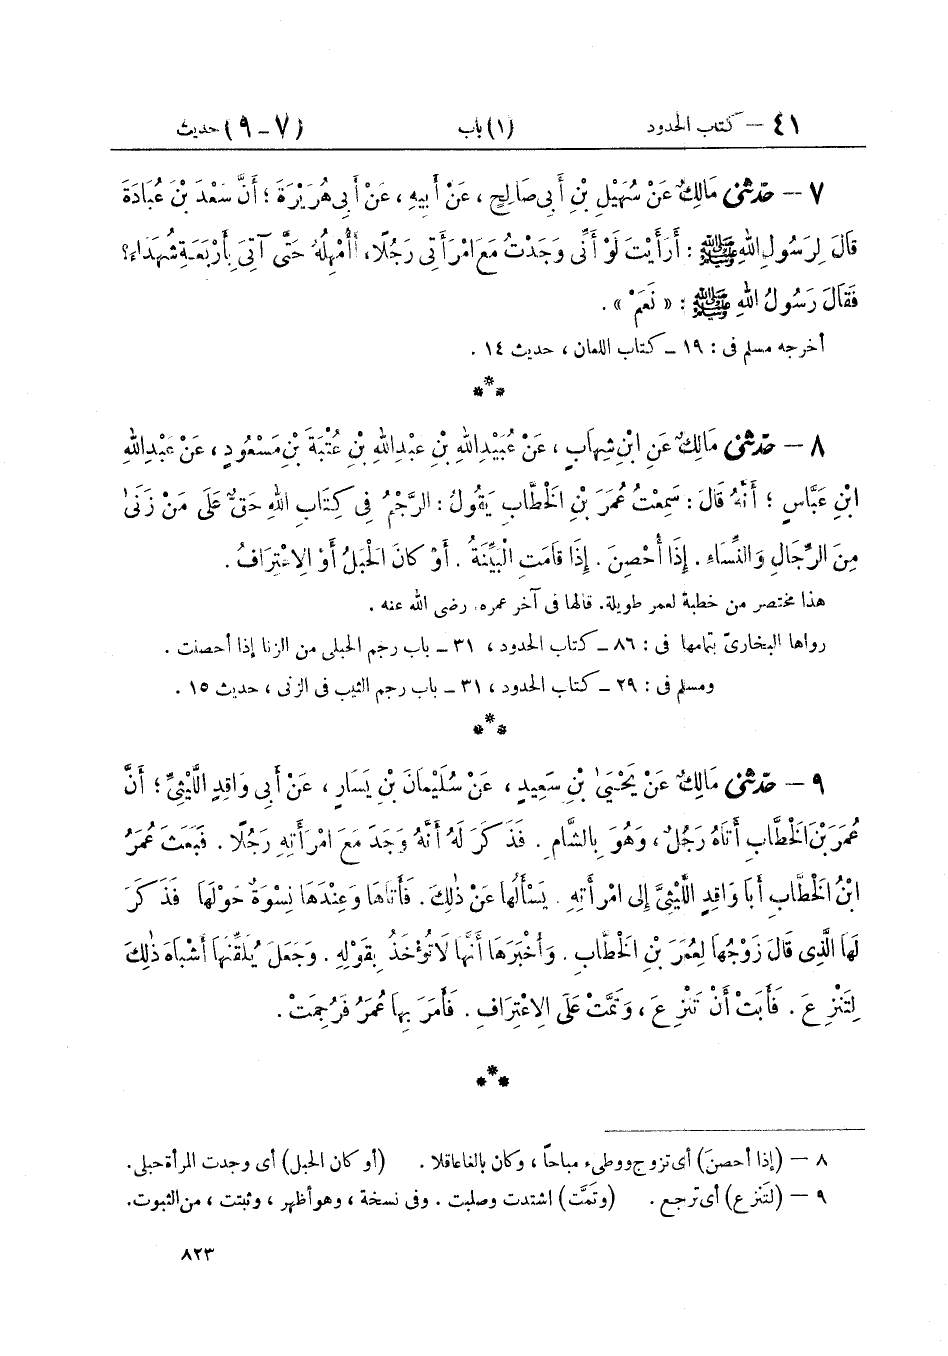 ٤١ – كتاب الحدود (١) باب (٧ – ٩) حديث
٧ – حدّثنى مَالِكٌ عَنْ سُهَيْلِ بْنِ أَبِى صَالِحٍ، عَنْ أَبِيهِ، عَنْ أَبِى هُرَيْرَةَ؛ أَنَّ سَعْدَ بْنَ عُبَادَةَ
قَالَ لِرَسُولِ اللهِ ﷺ : أَرَأَيْتَ لَوْ أَنِّى وَجَدْتُ مَعَ امْرَأَتِى رَجُلًا، أَأُمْهِلُهُ حَتَّى آتِىَ بِأَرْبَعَةِ شُهَدَاءَ؟
فَقَالَ رَسُولُ اللهِ ﷺ : « نَعَمْ » .
أخرجه مسلم فى : ١٩ – كتاب اللعان ، حديث ١٤ .
***
٨ – حدّثنى مَالِكٌ عَنِ ابْنِ شِهَابٍ ، عَنْ عُبَيْدِ اللهِ بْنِ عَبْدِ اللهِ بْنِ عُتْبَةَ بْنِ مَسْعُودٍ ، عَنْ عَبْدِ اللهِ
ابْنِ عَبَّاسٍ ؛ أَنَّهُ قَالَ : سَمِعْتُ عُمَرَ بْنَ الْخَطَّابِ يَقُولُ : الرَّجْمُ فِى كِتَابِ اللهِ حَقٌّ عَلَى مَنْ زَنَىٰ
مِنَ الرِّجَالِ وَالنِّسَاءِ . إِذَا أُحْصِنَ . إِذَا قَامَتِ الْبَيِّنَةُ . أَوْ كَانَ الْحَبَلُ أَوْ الِاعْتِرَافُ .
هذا مختصر من خطبة لعمر طويلة. قالها فى آخر عمره. رضى الله عنه .
رواها البخارىّ بتمامها فى : ٨٦ – كتاب الحدود ، ٣١ – باب رجم الحبلى من الزنا إذا أحصنت .
ومسلم فى : ٢٩ – كتاب الحدود ، ٣١ – باب رجم الثيب فى الزنى ، حديث ١٥ .
***
٩ – حدّثنى مَالِكٌ عَنْ يَحْيَىٰ بْنِ سَعِيدٍ ، عَنْ سُلَيْمَانَ بْنِ يَسَارٍ ، عَنْ أَبِى وَاقِدٍ اللَّيْثِىِّ ؛ أَنَّ
عُمَرَ بْنَ الْخَطَّابِ أَتَاهُ رَجُلٌ ، وَهُوَ بِالشَّامِ . فَذَكَرَ لَهُ أَنَّهُ وَجَدَ مَعَ امْرَأَتِهِ رَجُلًا . فَبَعَثَ عُمَرُ
ابْنُ الْخَطَّابِ أَبَا وَاقِدٍ اللَّيْثِىَّ إِلَى امْرَأَتِهِ . يَسْأَلُهَا عَنْ ذٰلِكَ . فَأَتَاهَا وَعِنْدَهَا نِسْوَةٌ حَوْلَهَا فَذَكَرَ
لَهَا الَّذِى قَالَ زَوْجُهَا لِعُمَرَ بْنِ الْخَطَّابِ . وَأَخْبَرَهَا أَنَّهَا لَا تُؤْخَذُ بِقَوْلِهِ . وَجَعَلَ يُلَقِّنُهَا أَشْبَاهَ ذٰلِكَ
لِتَنْزِعَ . فَأَبَتْ أَنْ تَنْزِعَ ، وَتَمَّتْ عَلَى الِاعْتِرَافِ . فَأَمَرَ بِهَا عُمَرُ فَرُجِمَتْ .
***
٨ – (إذا أحصنَ) أى تزوج ووطىء مباحاً ، وكان بالغا عاقلا . (أو كان الحبل) أى وجدت المرأة حبلى.
٩ – (لتنزع) أى ترجع . (وتمَّت) اشتدت وصلبت . وفى نسخة ، وهو أظهر ، وثبتت ، من الثبوت.
٨٢٣